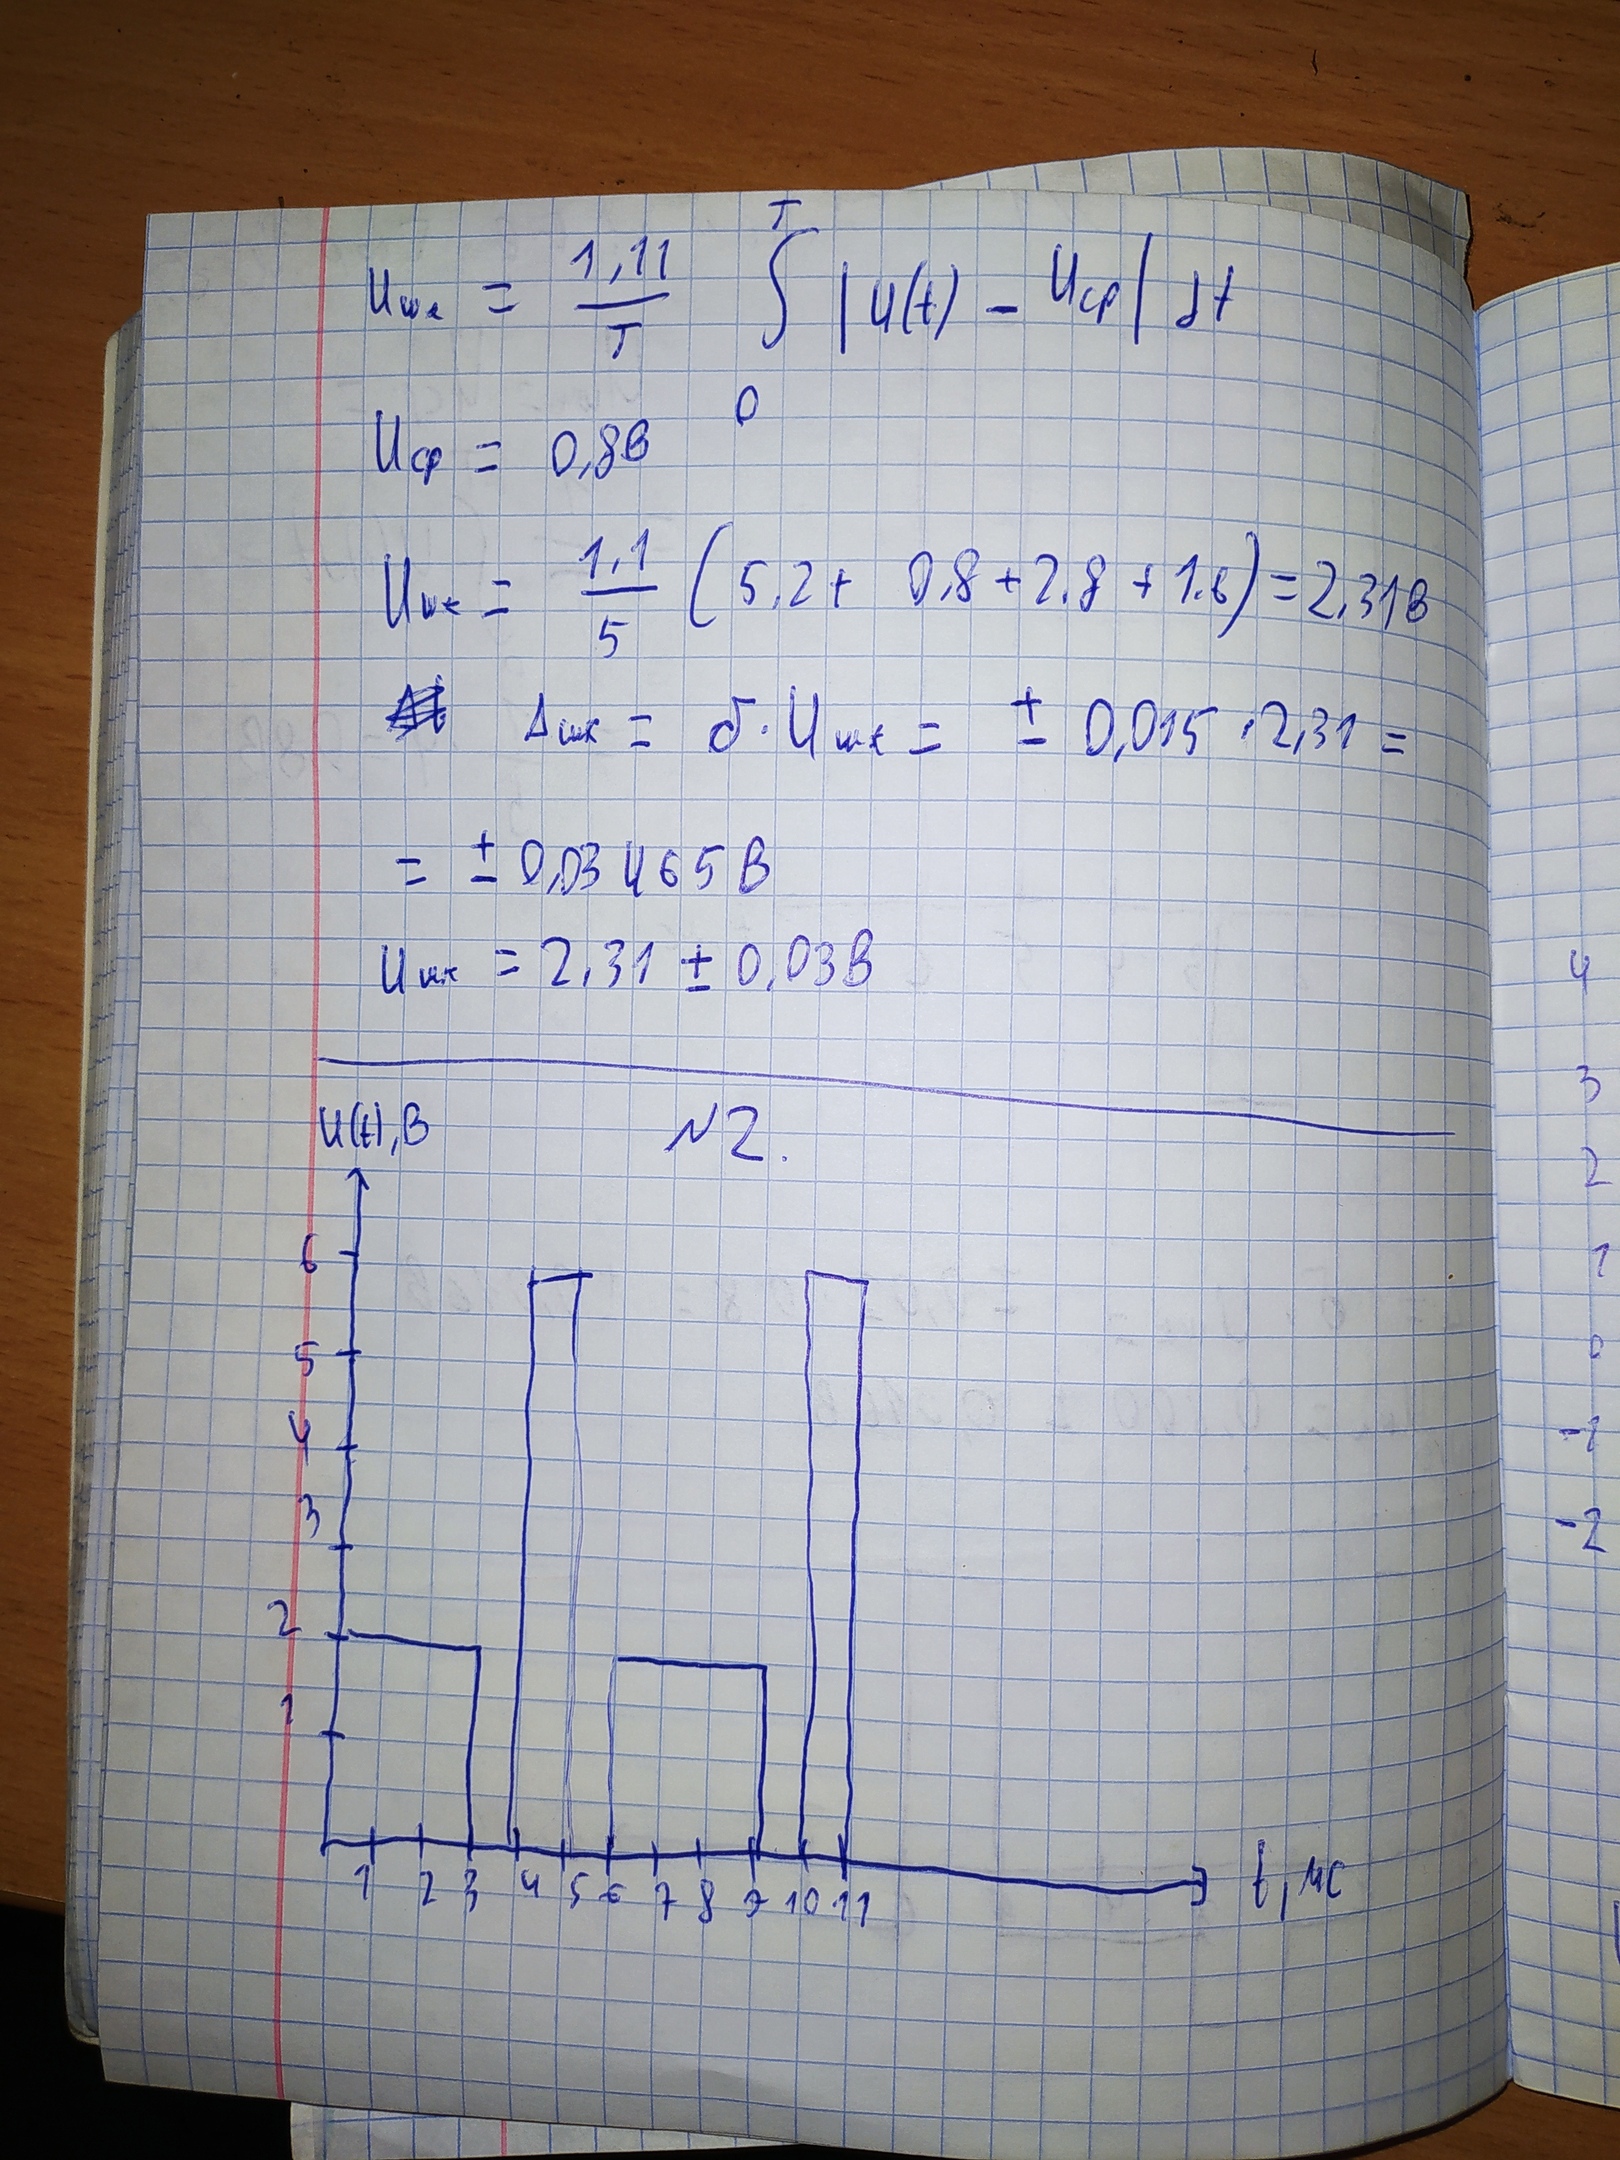 Uшк = 1,11/T ∫₀ᵀ |U(t) - Uср| dt
Uср = 0,8В
Uшк = 1,1/5 (5,2 + 0,8 + 2,8 + 1.6) = 2,31В
Δшк = δ·Uшк = ± 0,015 · 2,31 =
= ± 0,03465В
Uшк = 2,31 ± 0,03В
U(t),В
N2.
6
5
4
3
2
1
1 2 3 4 5 6 7 8 9 10 11
t, мс
4
3
2
1
0
-1
-2